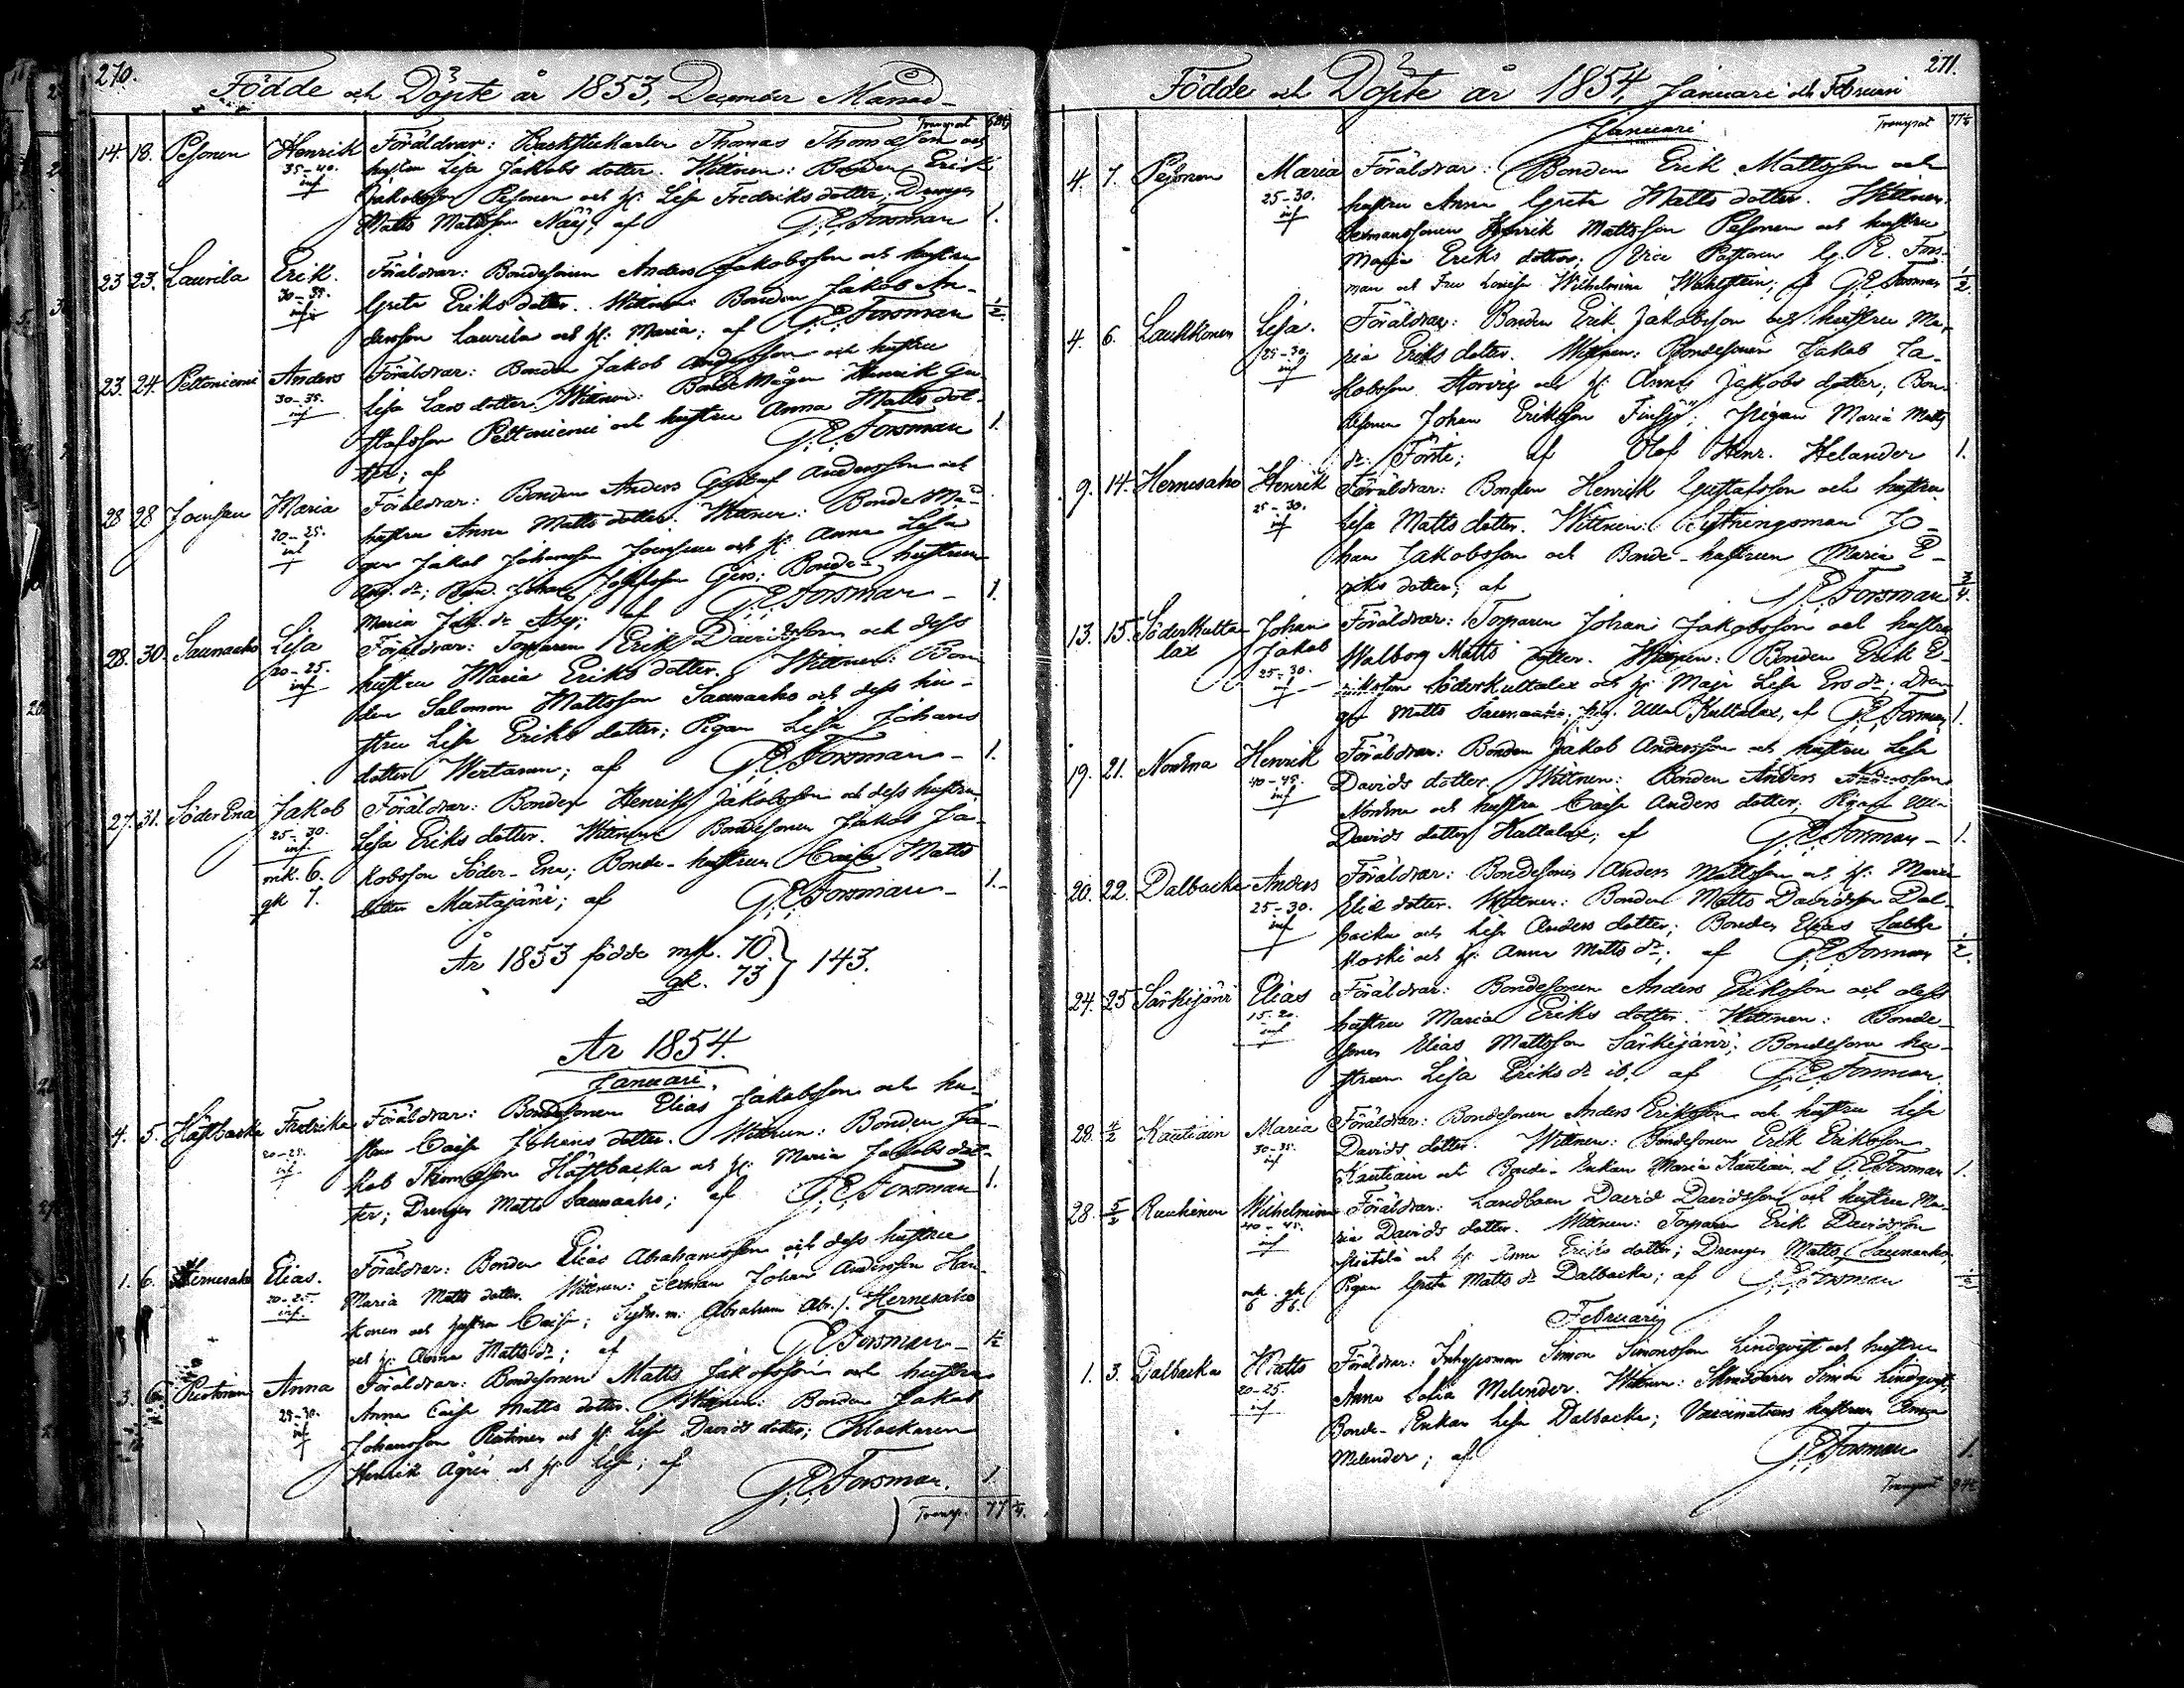 270.
Födde och Döpte år 1853, December Månad
Transport
14. 18. Pesonen Henrik Föräldrar: Backstukarlen Thomas Thomasson och
35-40. hustrun Lisa Jakobs dotter. Wittnen: Bonden Erik
inf Jakobsson Pesonen och h: Lisa Fredriks dotter; Drengen
Matts Mattsson Näsi; af G. E. Forsman 1.
23 23. Laurila Erik. Föräldrar: Bondesonen Anders Jakobsson och hustru
30-35. Greta Eriks dotter. Wittnen: Bonden Jakob An- ½
inf. dersson Laurila och h: Maria; af G. E. Forsman
23. 24. Peltoniemi Anders Föräldrar: Bonden Jakob Andersson och hustru
30-35. Lisa Lars dotter. Wittnen: BondeMågen Henrik Gu-
inf stafsson Peltoniemi och hustru Anna Matts dot-
ter; af G. E. Forsman 1.
28 28 Jounsen Maria Föräldrar: Bonden Anders Gustaf Andersson och
20-25. hustru Anna Matts dotter. Wittnen: BondeMå-
inf gen Jakob Johansson Jounsen och h: Anna Lisa
And. dr; Bond. Johan Josefsson Gers; Bonde-hustrun
Maria Jak. dr Åby; af G. E. Forsman 1.
28. 30. Saunaaho Lisa Föräldrar: Torparen Erik Davidsson och dess
20-25. hustru Maria Eriks dotter. Wittnen: Bon-
inf den Salomon Mattsson Saunaaho och dess hu-
stru Lisa Eriks dotter; Pigan Lisa Johans
dotter Wertanen; af G. E. Forsman 1.
27. 31. SöderEna Jakob Föräldrar: Bonden Henrik Jakobsson och dess hustru
25-30. Lisa Eriks dotter. Wittnen: Bondesonen Jakob Ja-
inf. kobsson Söder-Ena; Bonde-hustrun Caisa Matts
mk. 6. dotter Mustajärvi; af G. E. Forsman 1.
qk 7.
År 1853 födde mk. 70.
qk. 73 } 143.
År 1854.
Januari.
4. 5. Häftbacka Fredrika Föräldrar: Bondesonen Elias Jakobsson och hu-
20-25. stru Caisa Johans dotter. Wittnen: Bonden Ja-
inf kob Thomasson Häftbacka och h: Maria Jakobs dot-
ter; Drengen Matts Saunaaho; af G. E. Forsman 1.
1. 6. Hernesaho Elias. Föräldrar: Bonden Elias Abrahamsson och dess hustru
20-25. Maria Matts dotter. Wittnen: Sexman Johan Andersson Han-
inf. konen och hustru Caisa; Sytn. m: Abraham Abr. s. Hernesaho
och h: Anna Matts dr; af G. E. Forsman
3. 6. Anna Föräldrar: Bondesonen Matts Jakobsson och hustru
25-30. Anna Caisa Matts dotter. Wittnen: Bonden Jakob
inf Johansson och h: Lisa Davids dotter; Klockaren
Henrik Ågren och h: Lisa; af G. E. Forsman. 1.
Transp. 77 ¼.
271.
Födde och Döpte år 1854, Januari och Februari
Januari Transport 77¼
4. 7. Pesonen Maria Föräldrar: Bonden Erik Mattsson och
25-30. hustru Anna Greta Matts dotter. Wittnen:
inf Sexmanssonen Henrik Mattsson Pesonen och hustru
Maria Eriks dotter; Vice Pastoren G. E. Fors-
man och Fru Lovisa Wilhelmina Wahlstein; af G. E. Forsman ½.
4. 6. Laukkonen Lisa. Föräldrar: Bonden Erik Jakobsson och hustru Ma-
25-30. ria Eriks dotter. Wittnen: Bondesonen Jakob Ja-
inf kobsson Storvis och h: Anna Jakobs dotter; Bon-
desonen Johan Eriksson Finsjö; Pigan Maria Matts
dr Förti; af Olof Henr. Helander 1.
9. 14. Hernesaho Henrik Föräldrar: Bonden Henrik Gustafsson och hustru
25-30. Lisa Matts dotter. Wittnen: Sytningsman Jo-
inf han Jakobsson och Bonde-hustrun Maria E-
riks dotter; af G. E. Forsman ¾.
13. 15. Söderkulta- Johan Föräldrar: Torparen Johan Jakobsson och hustru
lax Jakob Walborg Matts dotter. Wittnen: Bonden Erik E-
25-30. riksson Söderkultalax och h: Maja Lisa Ers dr; Dren-
inf gen Matts Saunaaho, Pig. Ulla Kultalax, af G. E. Forsman 1.
19. 21. Norrena Henrik Föräldrar: Bonden Jakob Andersson och hustru Lisa
40-45. Davids dotter. Wittnen: Bonden Anders Andersson
inf Norrena och hustru Caisa Anders dotter; Pigan
Davids dotter Kultalax; af G. E. Forsman 1.
20. 22. Dalbacka Anders Föräldrar: Bondesonen Anders Mattsson och h: Maria
25-30. Elias dotter. Wittnen: Bonden Matts Davidsson Dal-
inf backa och Lisa Anders dotter; Bonden Elias
koski och h: Anna Matts dr; af G. E. Forsman ½.
24. 25 Särkijärvi Elias Föräldrar: Bondesonen Anders Eriksson och dess
15.20. hustru Maria Eriks dotter. Wittnen: Bonde-
inf sonen Elias Mattsson Särkijärvi; Bondesons hu-
strun Lisa Eriks dr ib. af G. E. Forsman.
28. 4/2 Kautiain Maria Föräldrar: Bondesonen Anders Eriksson och hustru Lisa
30-35. Davids dotter. Wittnen: Bondesonen Erik Eriksson
inf Kautiain och Bonde-Enkan Maria Kautiain, af G. E. Forsman 1.
28. 5/2 Wilhelmina Föräldrar: Landboen David Davidsson och hustru Ma-
40-45. ria Davids dotter. Wittnen: Torparen Erik Davidsson
inf och h: Anna Eriks dotter; Drengen Matts Saunaaho,
mk. qk Pigan Greta Matts dr Dalbacka; af G. E. Forsman ½
6 6.
Februari
1. 3. Dalbacka Matts Föräldrar: Inhysesman Simon Simonsson Lindqvist och hustru
20-25. Anna Sofia Melender. Wittnen: Skräddaren Simon Lindqvist,
inf Bonde-Enkan Lisa Dalbacka; Vaccinatörs hustrun Anna
Melender; af G. E. Forsman 1.
Transport